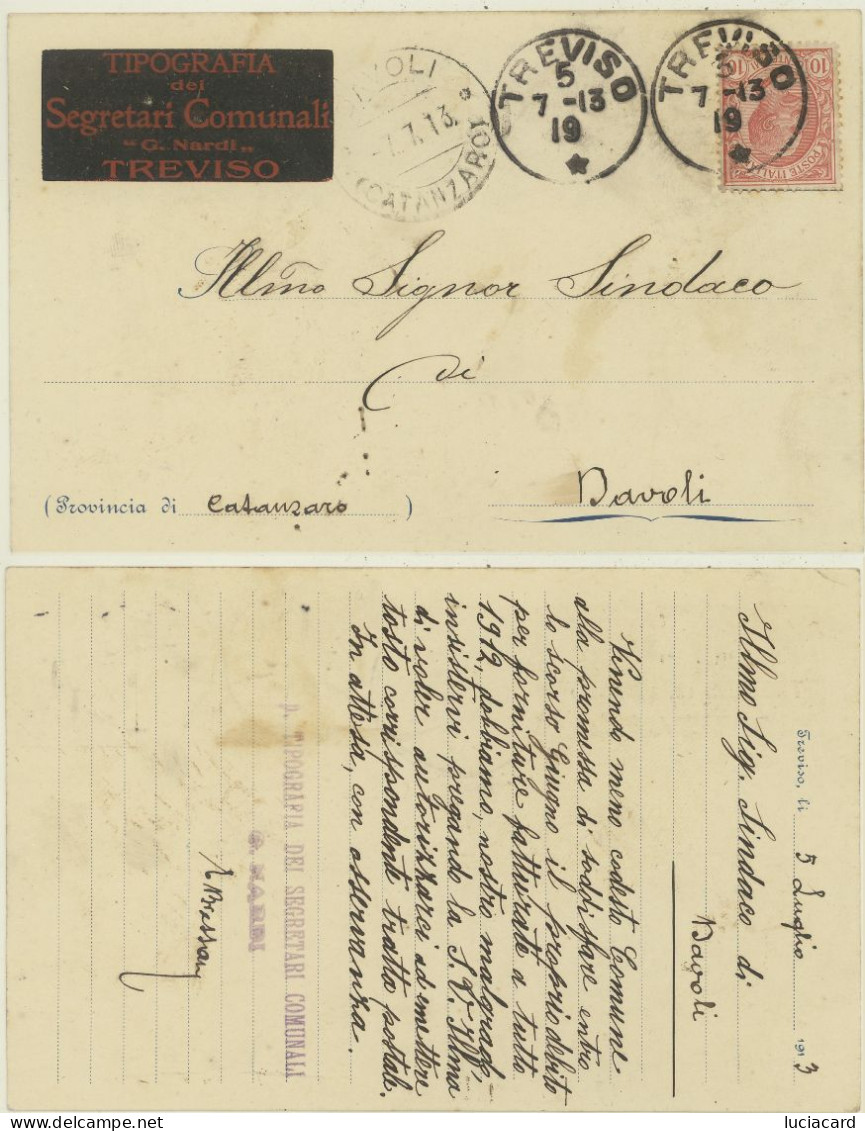 TIPOGRAFIA
dei
Segretari Comunali
"G. Nardi„
TREVISO
7.13
(CATANZARO)
TREVISO
5
7 -13
19
TREVISO
5
7 -13
19
10
10
POSTE ITALIA
Illmo Signor Sindaco
di
Davoli
(Provincia di Catanzaro)
Treviso, li 5 Luglio 1913
Illmo Sig. Sindaco di
Davoli
Venendo meno codesto Comune
alla promessa di soddisfare entro
lo scorso Giugno il proprio debito
per forniture fatturate a tutto
1912, dobbiamo, nostro malgrado,
insistervi pregando la S. V. Illma
di voler autorizzarci ad emettere
tosto corrispondente tratta postale.
In attesa, con osservanza.
p. TIPOGRAFIA DEI SEGRETARI COMUNALI
G. NARDI
luciacard